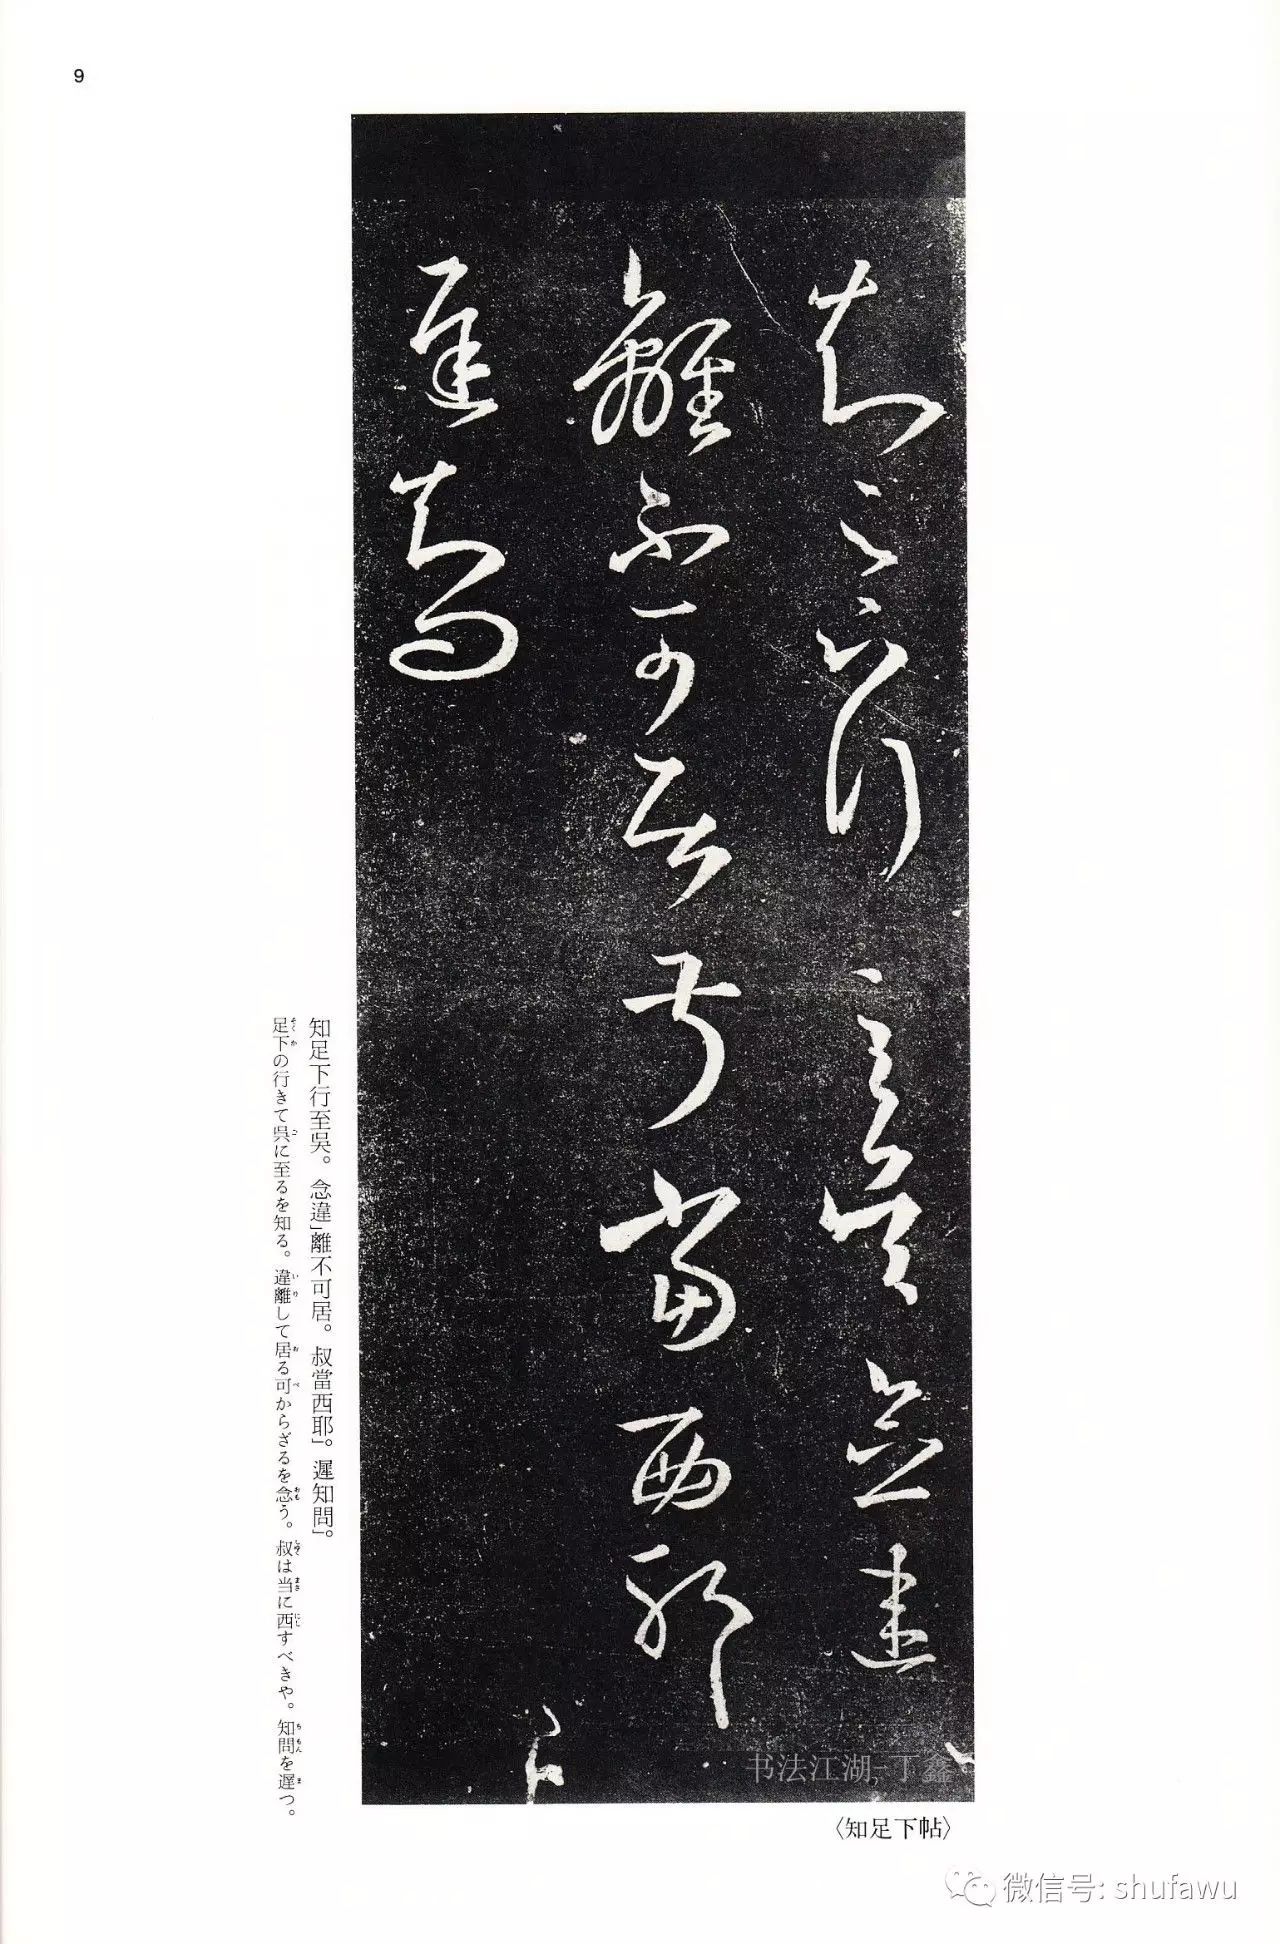 9
知足下行至吳念違
離不可居叔當西耶
遲知問
知足下行至吳。念違」離不可居。叔當西耶」。遲知問」。
足下の行きて呉に至るを知る。違離して居る可からざるを念う。叔は当に西すべきや。知問を遅つ。
〈知足下帖〉
书法江湖-丁鑫
微信号: shufawu